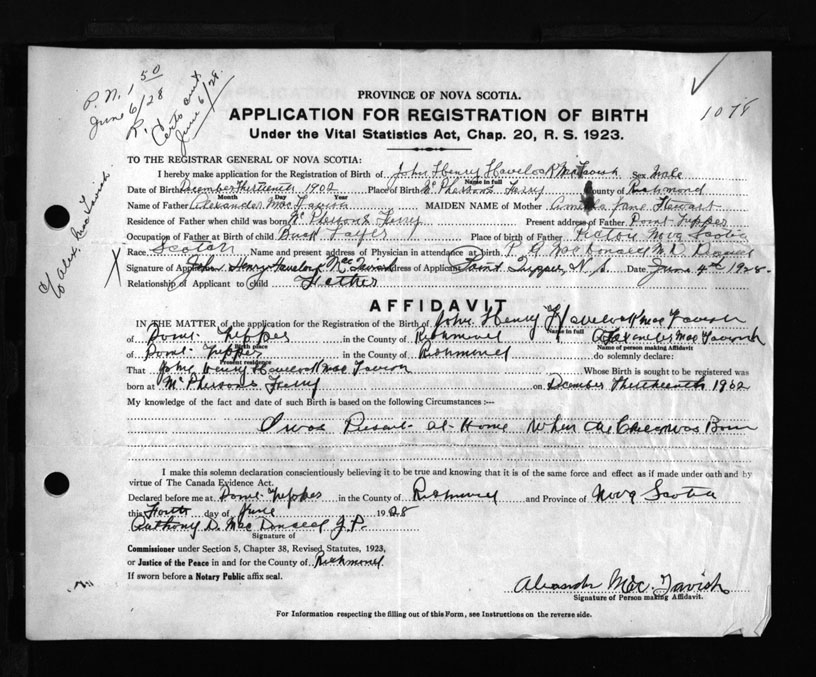 P. N. 1 50
June 6/28
June 6/28
1078
c/o Alex. MacTavish
PROVINCE OF NOVA SCOTIA.
APPLICATION FOR REGISTRATION OF BIRTH
Under the Vital Statistics Act, Chap. 20, R. S. 1923.
TO THE REGISTRAR GENERAL OF NOVA SCOTIA:
I hereby make application for the Registration of Birth of John Henry Havelock McTavish Sex Male
Name in full
Date of Birth December Thirteenth 1902 Place of Birth McPhersons Ferry County of Richmond
Month Day Year
Name of Father Alexander MacTavish MAIDEN NAME of Mother Jane Stewart
Residence of Father when child was born McPhersons Ferry Present address of Father Point Tupper
Occupation of Father at Birth of child Place of birth of Father Pictou Nova Scotia
Race Scotch Name and present address of Physician in attendance at birth,
Signature of Applicant John Henry Havelock MacTavish Address of Applicant Point Tupper N. S. Date June 4th 1928
Relationship of Applicant to Child Father
AFFIDAVIT
IN THE MATTER of the application for the Registration of the Birth of John Henry Havelock MacTavish
Name in full
of Point Tupper in the County of Richmond Alexander MacTavish
Birth place Name of person making Affidavit
of Point Tupper in the County of Richmond do solemnly declare:
Present residence
That John Henry Havelock MacTavish Whose Birth is sought to be registered was
born at McPhersons Ferry on December Thirteenth 1902
My knowledge of the fact and date of such Birth is based on the following Circumstances :—
I was Present at Home When the Child was Born
I make this solemn declaration conscientiously believing it to be true and knowing that it is of the same force and effect as if made under oath and by
virtue of The Canada Evidence Act.
Declared before me at Point Tupper in the County of Richmond and Province of Nova Scotia
this Fourth day of June 1928
Anthony D. Mac J.P.
Signature of
Commissioner under Section 5, Chapter 38, Revised Statutes, 1923,
or Justice of the Peace in and for the County of Richmond
If sworn before a Notary Public affix seal.
Alexander MacTavish
Signature of Person making Affidavit.
For Information respecting the filling out of this Form, see Instructions on the reverse side.